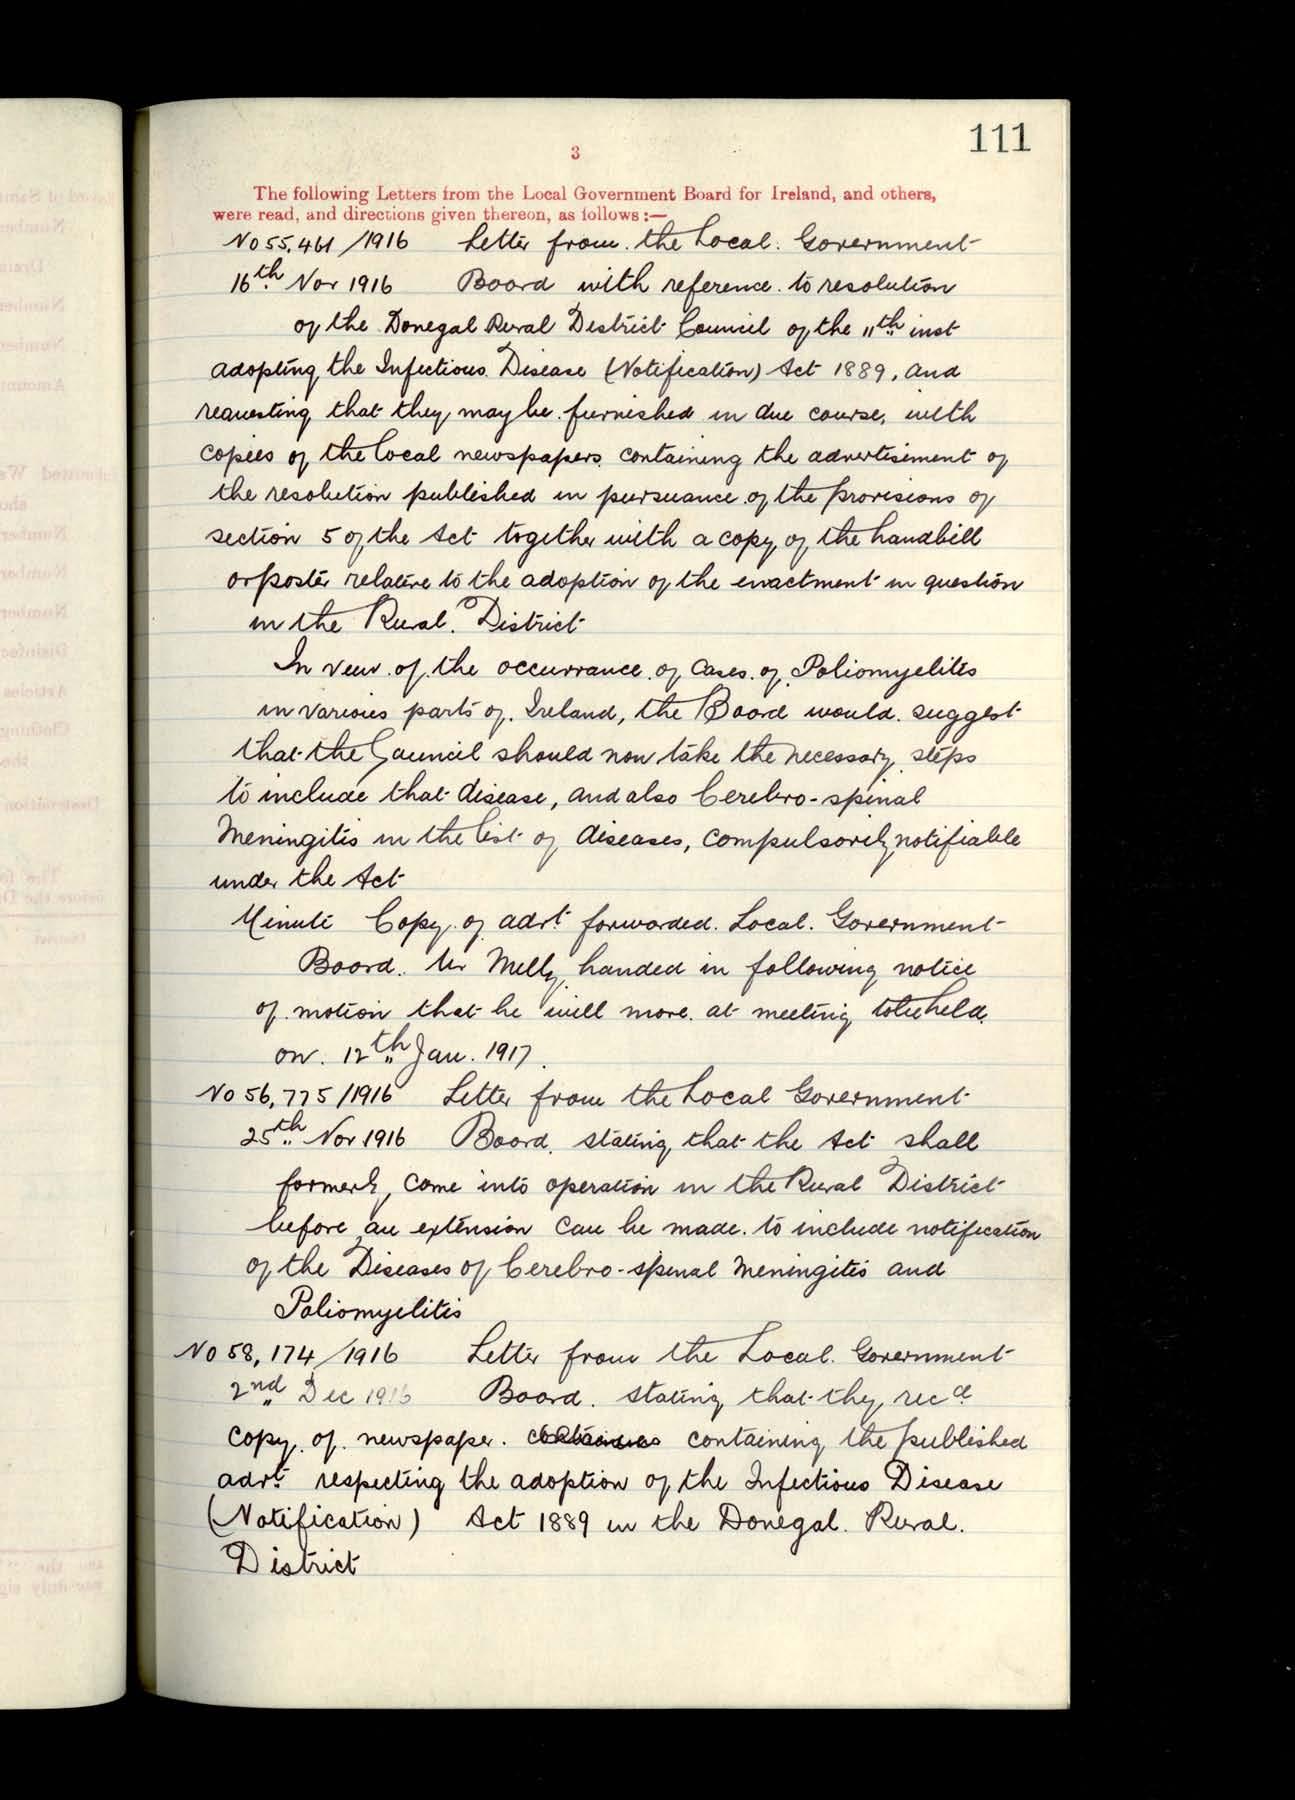 111
3
The following Letters from the Local Government Board for Ireland, and others,
were read, and directions given thereon, as follows:—
No 55,461/1916 Letter from the Local Government
16th Nov 1916 Board with reference to resolution
of the Donegal Rural District Council of the 11th inst
adopting the Infectious Disease (Notification) Act 1889, and
requesting that they may be furnished in due course, with
copies of the local newspapers containing the advertisement of
the resolution published in pursuance of the provisions of
section 5 of the Act together with a copy of the handbill
or poster relative to the adoption of the enactment in question
in the Rural District
In veiw of the occurrance of cases of Poliomyelitis
in various parts of Ireland, the Board would suggest
that the Council should now take the necessary steps
to include that disease, and also Cerebro-spinal
Meningitis in the list of diseases, compulsorily notifiable
under the Act
Minute Copy of advt. forwarded Local Government
Board. Mr Melly handed in following notice
of motion that he will move at meeting to be held
on 12th Jan. 1917.
No 56,775/1916 Letter from the Local Government
25th Nov 1916 Board stating that the Act shall
formerly come into operation in the Rural District
before an extension can be made to include notification
of the Diseases of Cerebro-spinal Meningitis and
Poliomyelitis
No 58,174/1916 Letter from the Local Government
2nd Dec 1916 Board stating that they recd
copy of newspaper containing the published
advt. respecting the adoption of the Infectious Disease
(Notification) Act 1889 in the Donegal Rural
District